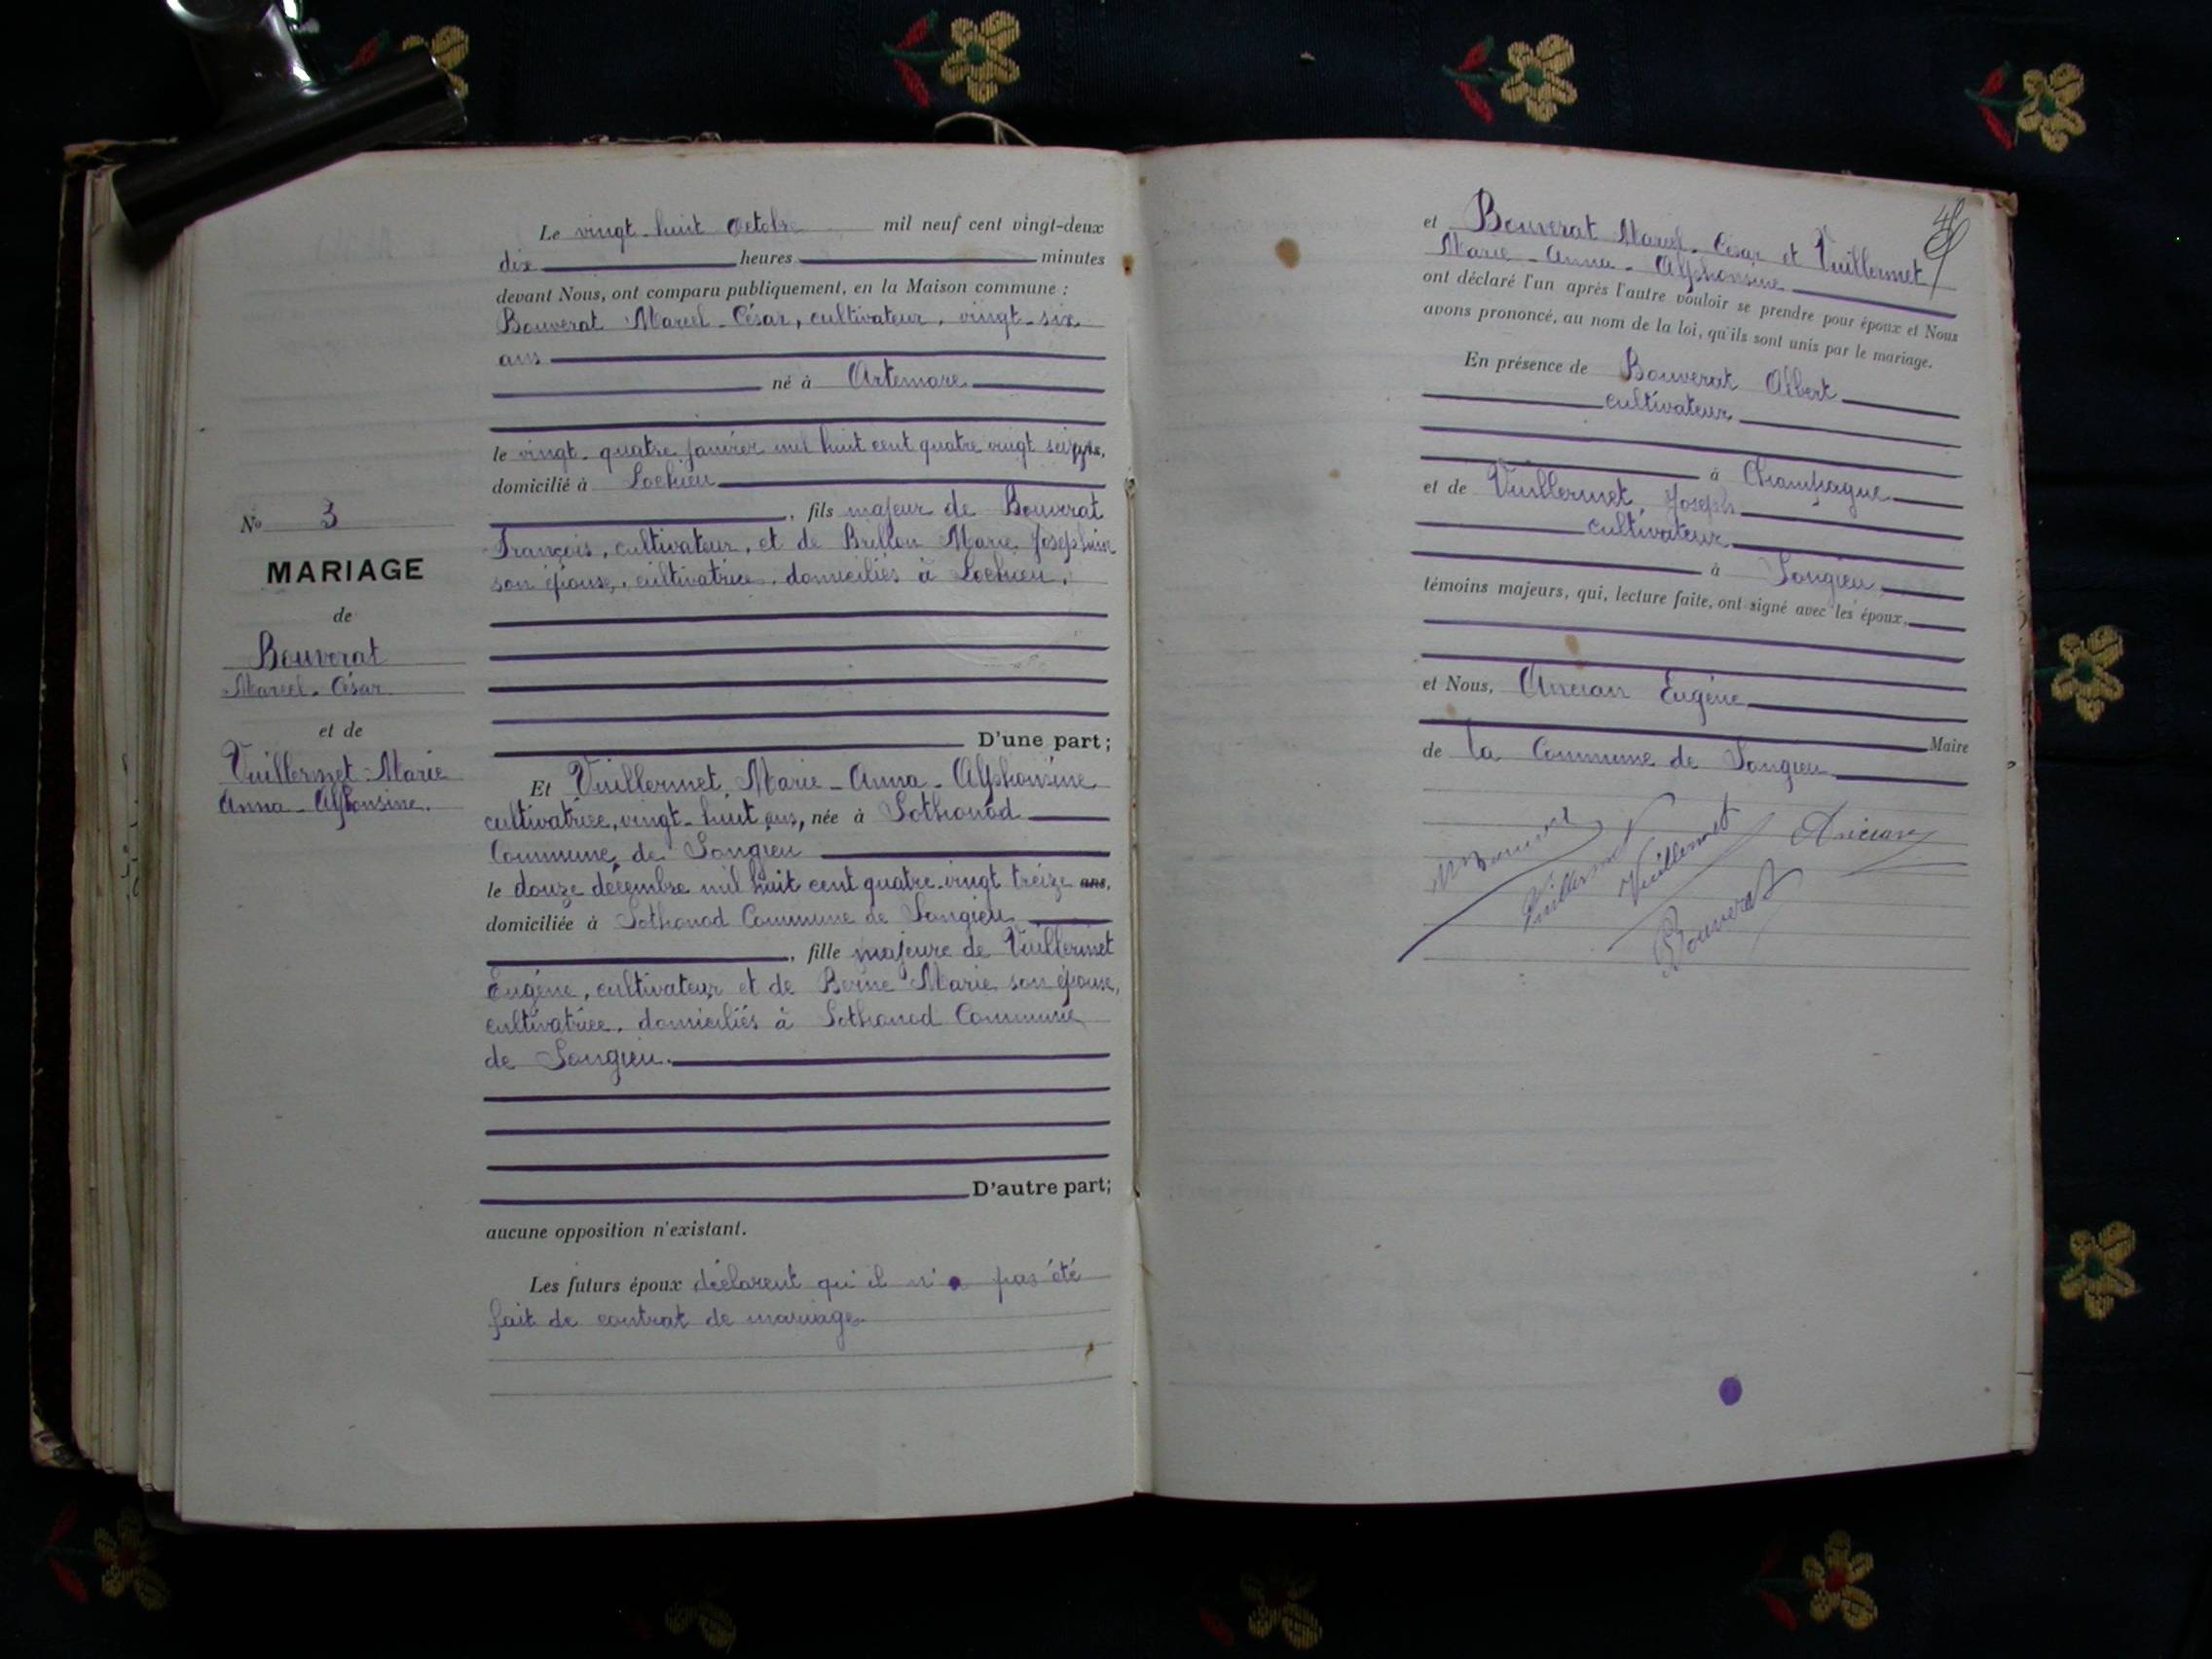 Le vingt-huit Octobre mil neuf cent vingt-deux
dix heures minutes
devant Nous, ont comparu publiquement, en la Maison commune :
Bouverat Marcel-César, cultivateur, vingt-six
ans
né à Artemare
le vingt-quatre janvier mil huit cent quatre vingt seize ans,
domicilié à Lochieu
, fils majeur de Bouverat
François, cultivateur, et de Brillon Marie Joséphine
son épouse, cultivatrice, domiciliés à Lochieu,
D'une part;
Et Vuillermet, Marie-Anna-Alphonsine
cultivatrice, vingt-huit ans, née à Sothonod
Commune de Songieu
le douze décembre mil huit cent quatre-vingt treize ans,
domiciliée à Sothonod Commune de Songieu
, fille majeure de Vuillermet
Eugène, cultivateur et de Berne Marie son épouse,
cultivatrice, domiciliés à Sothonod Commune
de Songieu.
D'autre part;
aucune opposition n'existant.
Les futurs époux déclarent qu'il n'a pas été
fait de contrat de mariage.
No 3
MARIAGE
de
Bouverat
Marcel-César
et de
Vuillermet Marie
Anna-Alphonsine.
et Bouverat Marcel-César et Vuillermet
Marie-Anna-Alphonsine
ont déclaré l'un après l'autre vouloir se prendre pour époux et Nous
avons prononcé, au nom de la loi, qu'ils sont unis par le mariage.
En présence de Bouverat Albert
cultivateur
à Champagne
et de Vuillermet Joseph
cultivateur
à Songieu
témoins majeurs, qui, lecture faite, ont signé avec les époux,
et Nous, Ancian Eugène
Maire
de la Commune de Songieu
Vuillermet Vuillermet Ancian
Bouverat